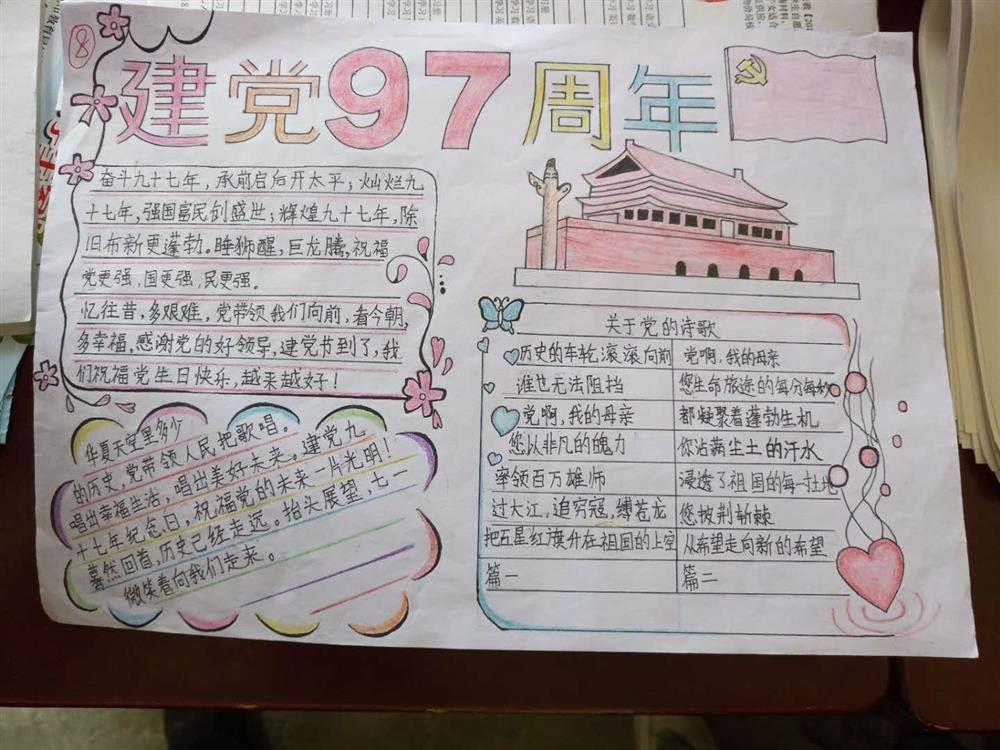 ⑧
建党97周年
奋斗九十七年，承前启后开太平；灿烂九
十七年，强国富民创盛世；辉煌九十七年，除
旧布新更蓬勃。睡狮醒，巨龙腾，祝福
党更强，国更强，民更强。
忆往昔，多艰难，党带领我们向前，看今朝，
多幸福，感谢党的好领导，建党节到了，我
们祝福党生日快乐，越来越好！
华夏天空里多少
的历史，党带领人民把歌唱。
唱出幸福生活，唱出美好未来。建党九
十七年纪念日，祝福党的未来一片光明！
蓦然回首，历史已经走远。抬头展望，七一
微笑着向我们走来。
关于党的诗歌
历史的车轮，滚滚向前
谁也无法阻挡
党啊，我的母亲
您以非凡的魄力
率领百万雄师
过大江，追穷寇，缚苍龙
把五星红旗升在祖国的上空
篇一
党啊，我的母亲
您生命旅途的每分每秒
都凝聚着蓬勃生机
你沾满尘土的汗水
浸透了祖国的每一寸土地
您披荆斩棘
从希望走向新的希望
篇二